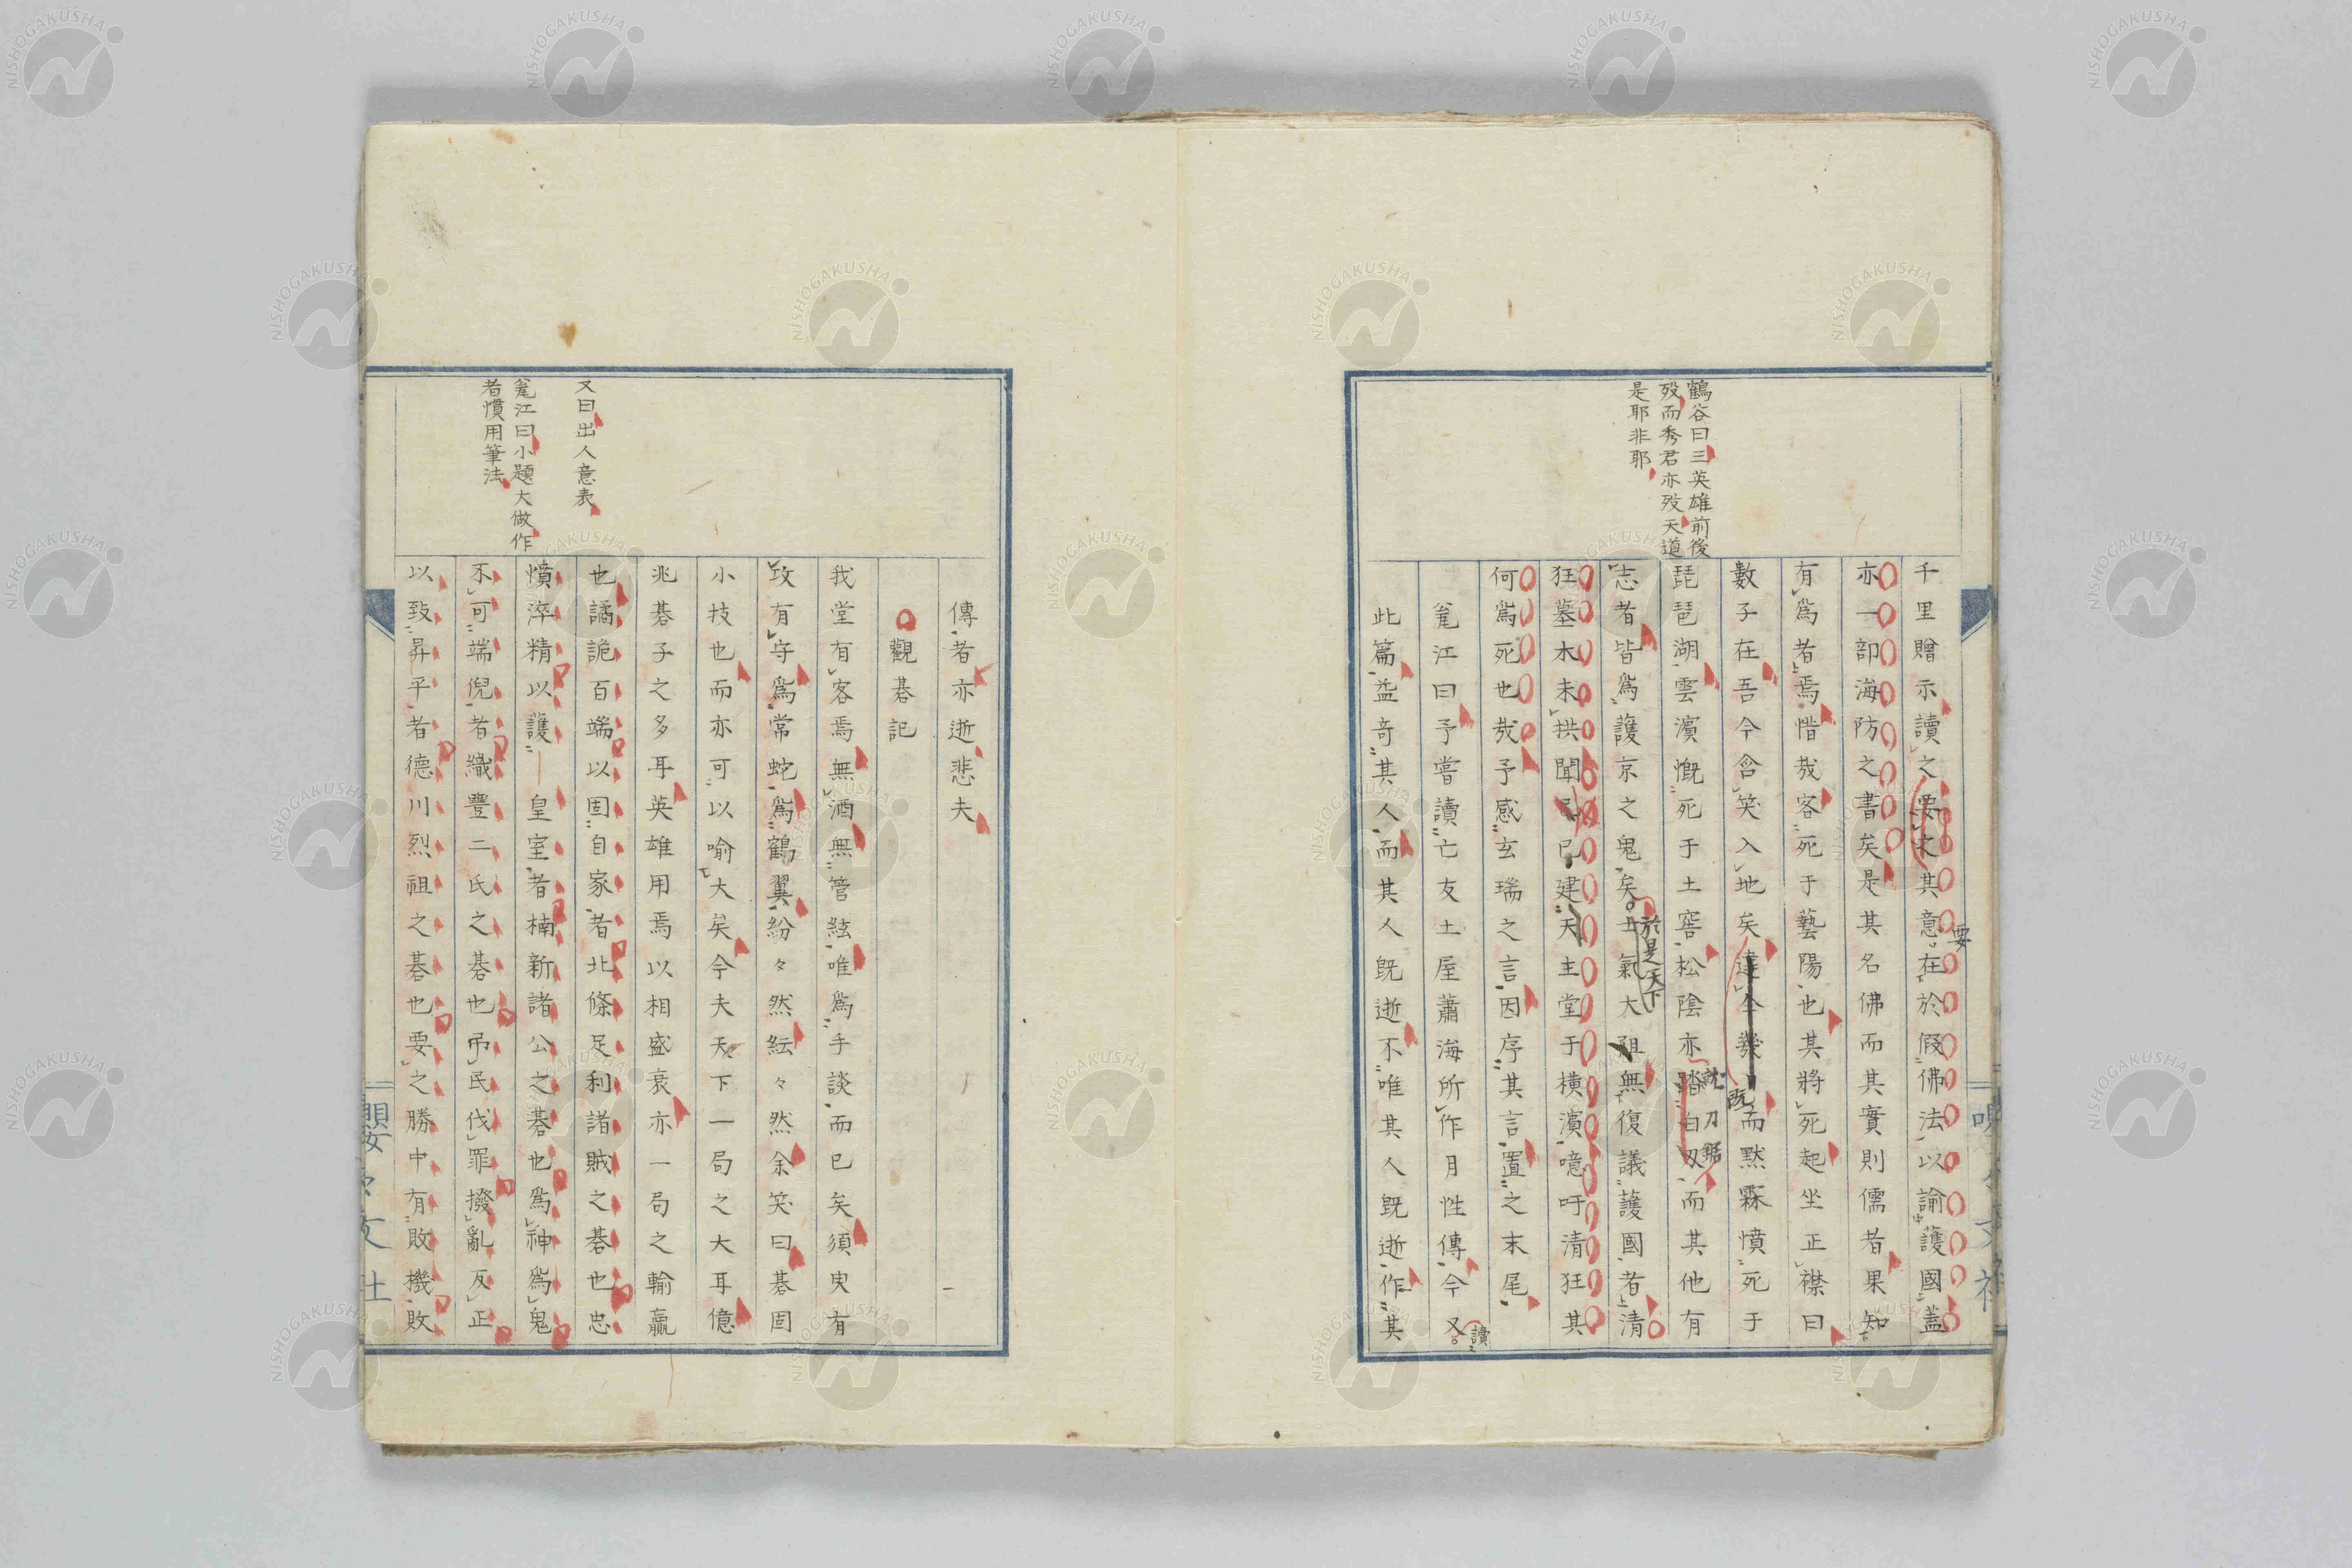 鶴谷曰三英雄前後
歿而秀君亦歿天道
是耶非耶
千里贈示讀之要之其意在於假佛法以諭護國蓋
要
亦一部海防之書矣是其名佛而其實則儒者果知
有爲者焉惜哉客死于藝陽也其將死起坐正襟曰
數子在吾今含笑入地矣違今幾而默霖憤死于
既
琵琶湖雲濵慨死于土窖松陰亦踏白刄而其他有
就刀鋸
志者皆爲護京之鬼矣士氣大沮無復議護國者清
於是天下
狂墓木未拱聞已建天主堂于横濵噫吁清狂其
何爲死也哉予感玄瑞之言因序其言置之末尾
毫江曰予嘗讀亡友土屋蕭海所作月性傳今又
讀
此篇益奇其人而其人既逝不唯其人既逝作其
傳者亦逝悲夫
觀碁記
我堂有客焉無酒無管絃唯爲手談而已矣須臾有
攻有守爲常蛇爲鶴翼紛々然紜々然余笑曰碁固
小技也而亦可以喻大矣今夫天下一局之大耳億
兆碁子之多耳英雄用焉以相盛衰亦一局之輸贏
又曰出人意表
也譎詭百端以固自家者北條足利諸賊之碁也忠
毫江曰小題大做作
者慣用筆法
憤淬精以護皇室者楠新諸公之碁也爲神爲鬼
不可端倪者織豐二氏之碁也吊民伐罪撥亂反正
以致昇平者德川烈祖之碁也要之勝中有敗機敗
NISHOGAKUSHA